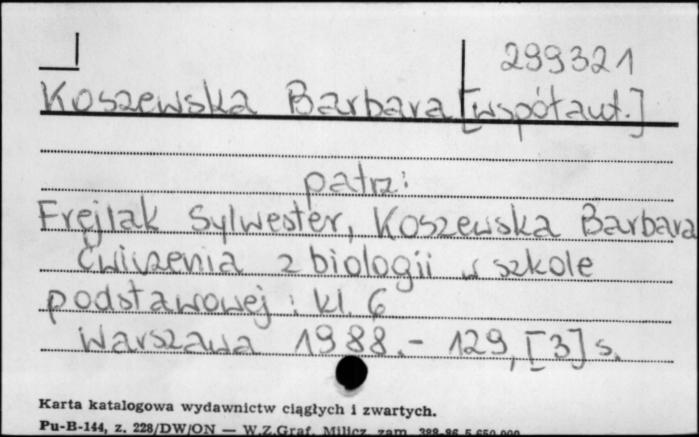 299321
Koszewska Barbara [współaut.]
patrz:
Frejlak Sylwester, Koszewska Barbara
Ćwiczenia z biologii w szkole
podstawowej : kl. 6
Warszawa 1988.- 129, [3] s.
Karta katalogowa wydawnictw ciągłych i zwartych.
Pu-B-144, z. 228/DW/ON — W.Z.Graf. Milicz zam. 388-86 5.650.000